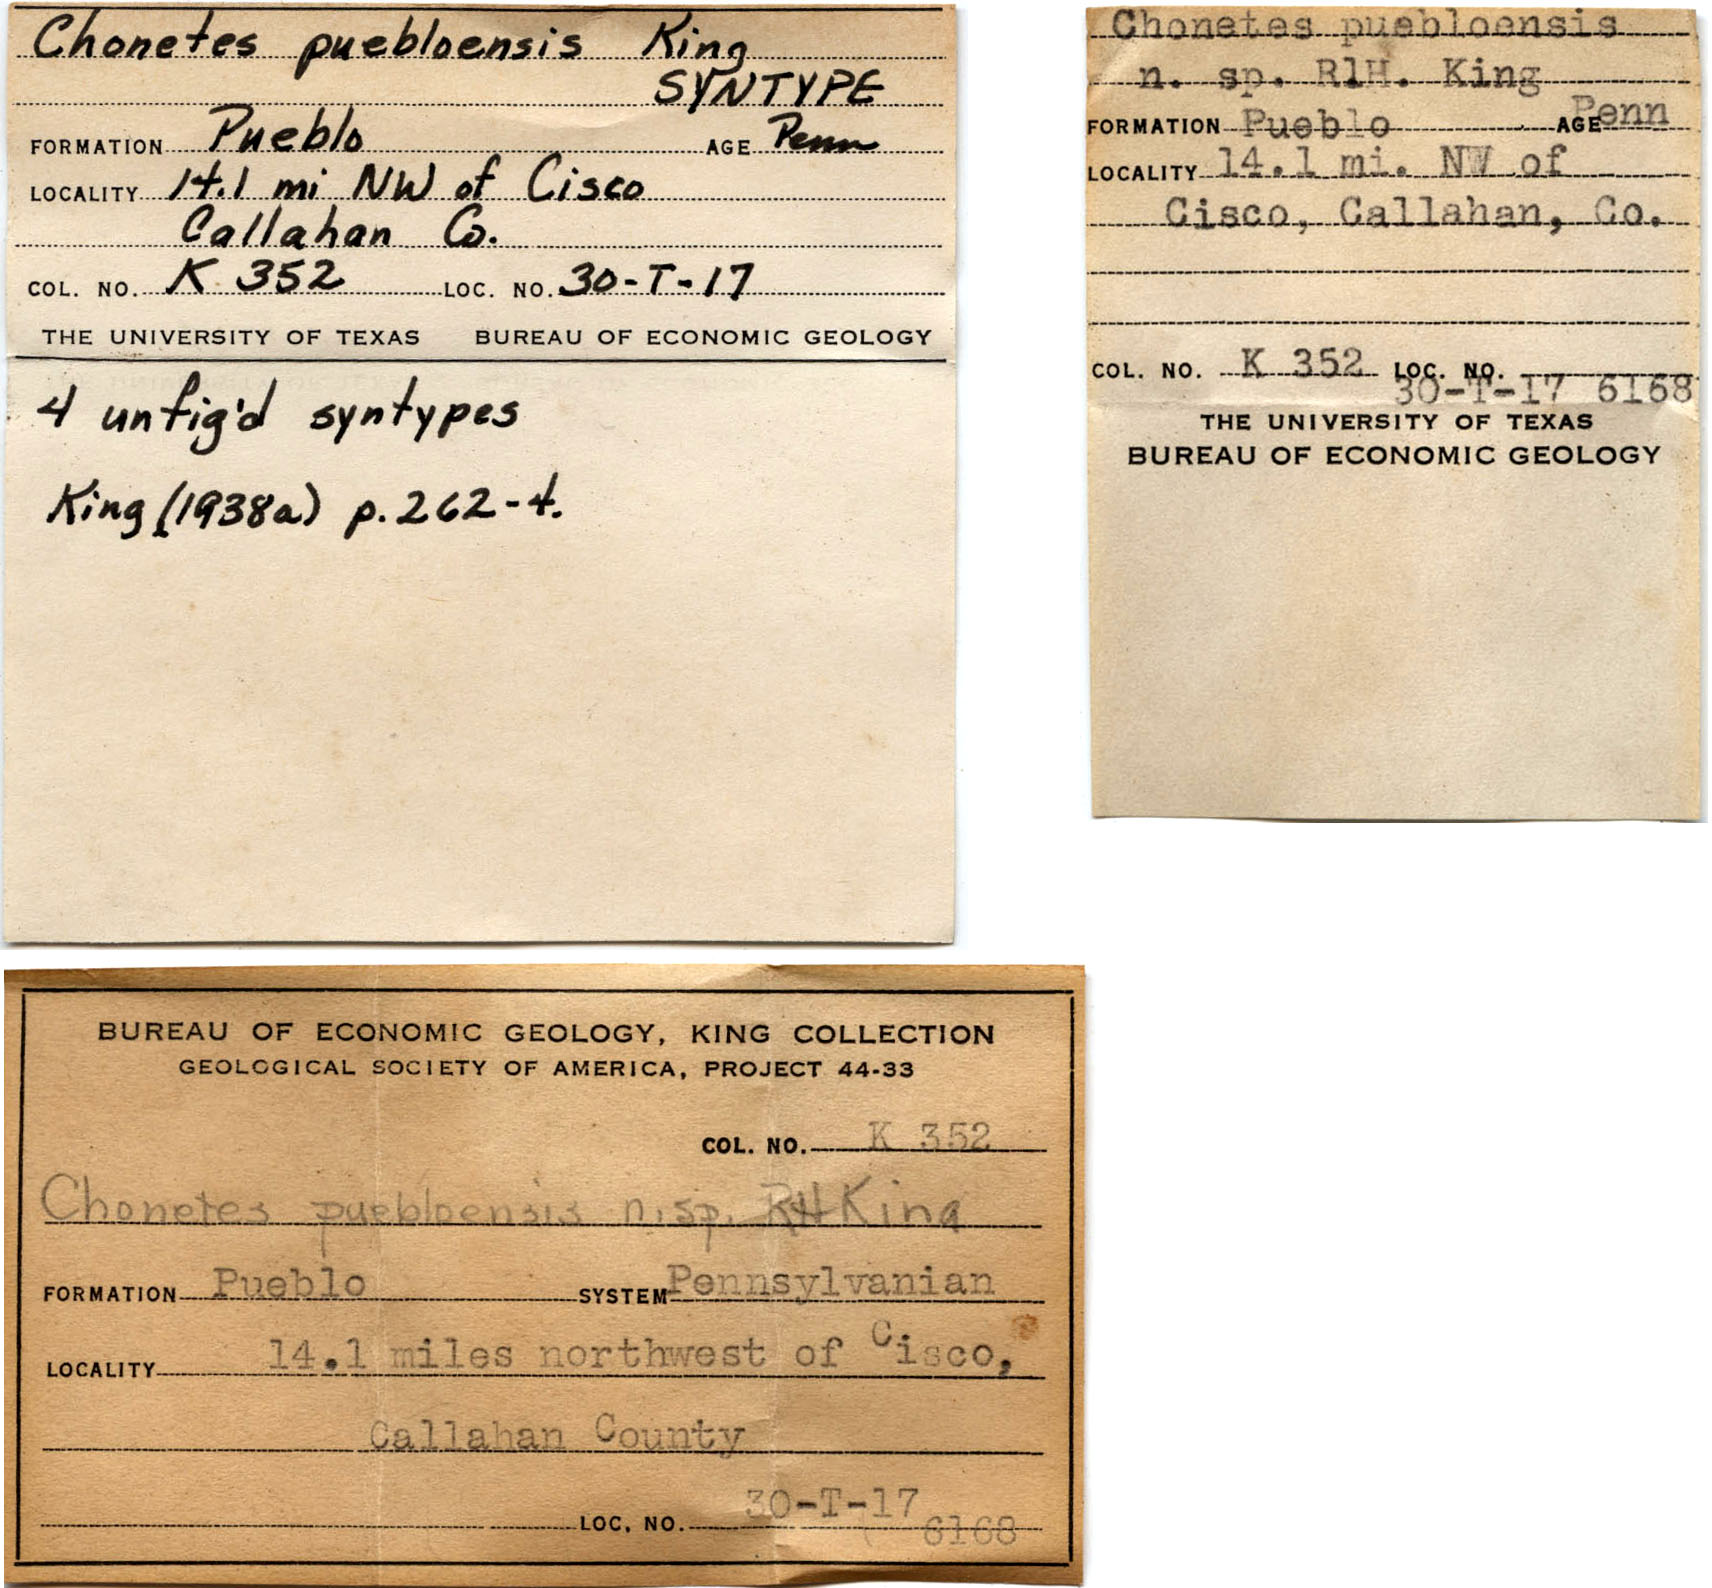 Chonetes puebloensis King
SYNTYPE
FORMATION Pueblo AGE Penn
LOCALITY 14.1 mi NW of Cisco
Callahan Co.
COL. NO. K 352 LOC. NO. 30-T-17
THE UNIVERSITY OF TEXAS BUREAU OF ECONOMIC GEOLOGY
4 unfig'd syntypes
King (1938a) p.262-4.
Chonetes puebloensis
n. sp. RlH. King
FORMATION Pueblo AGE Penn
LOCALITY 14.1 mi. NW of
Cisco, Callahan, Co.
COL. NO. K 352 LOC. NO.
30-T-17 6168
THE UNIVERSITY OF TEXAS
BUREAU OF ECONOMIC GEOLOGY
BUREAU OF ECONOMIC GEOLOGY, KING COLLECTION
GEOLOGICAL SOCIETY OF AMERICA, PROJECT 44-33
COL. NO. K 352
Chonetes puebloensis n.sp. RH King
FORMATION Pueblo SYSTEM Pennsylvanian
LOCALITY 14.1 miles northwest of Cisco,
Callahan County
LOC. NO. 30-T-17
6168